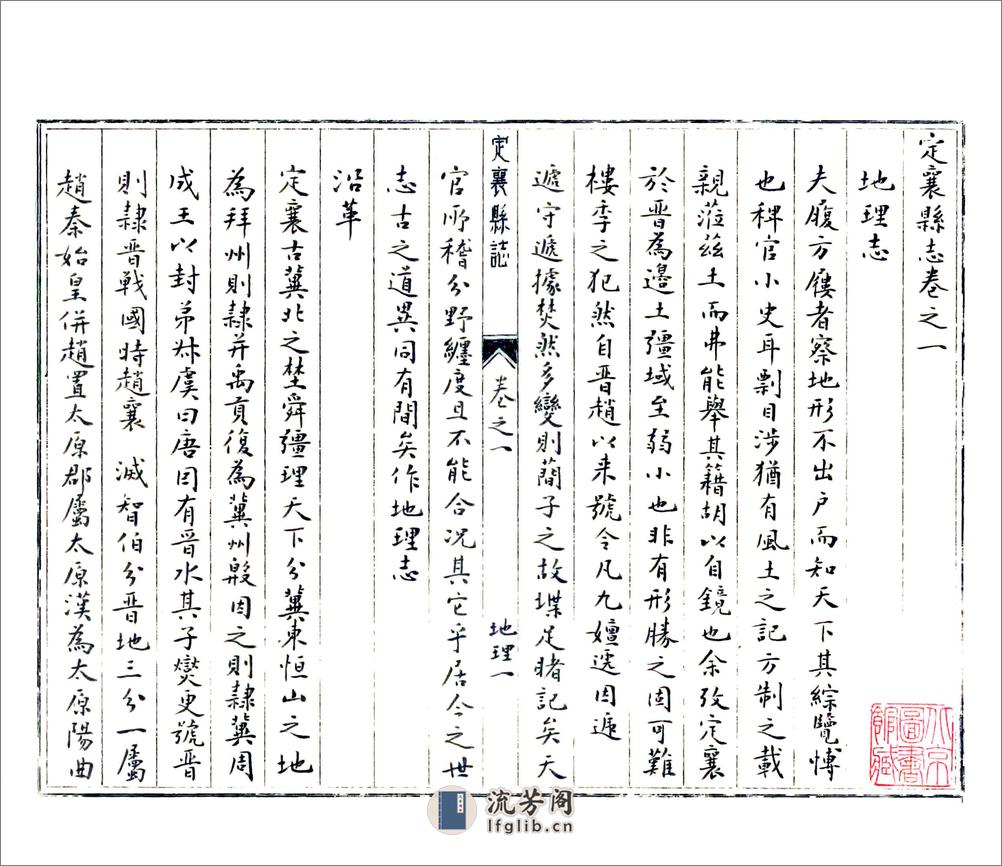 定襄縣志卷之一
地理志
夫履方屨者察地形不出户而知天下其綜覽慱
也稗官小史耳剽目涉猶有風土之記方制之載
親蒞兹土而弗能舉其籍胡以自鏡也余攷定襄
於晋為邊土疆域至弱小也非有形勝之固可難
樓季之犯然自晋趙以来號令凡九嬗遞因遞
遞守遞據焚然多變則蕳子之故堞足睹記矣天
定襄縣誌
卷之一
地理一
官所稽分野纏度且不能合况其它乎居今之世
志古之道異同有間矣作地理志
沿革
定襄古冀北之埜舜疆理天下分冀東恒山之地
為拜州則隷并禹貢復為冀州殷因之則隷冀周
成王以封弟叔虞曰唐因有晋水其子爕更號晋
則隷晋戰國時趙襄 滅智伯分晋地三分一屬
趙秦始皇併趙置太原郡屬太原漢為太原陽曲
北京
圖書
館藏
流芳阁
lfglib.cn